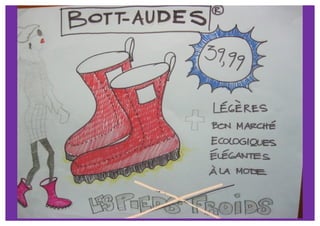 BOTT-AUDES®
39,99
+
LÉGÈRES
BON MARCHÉ
ECOLOGIQUES
ÉLÉGANTES
À LA MODE
LES PIEDS FROIDS